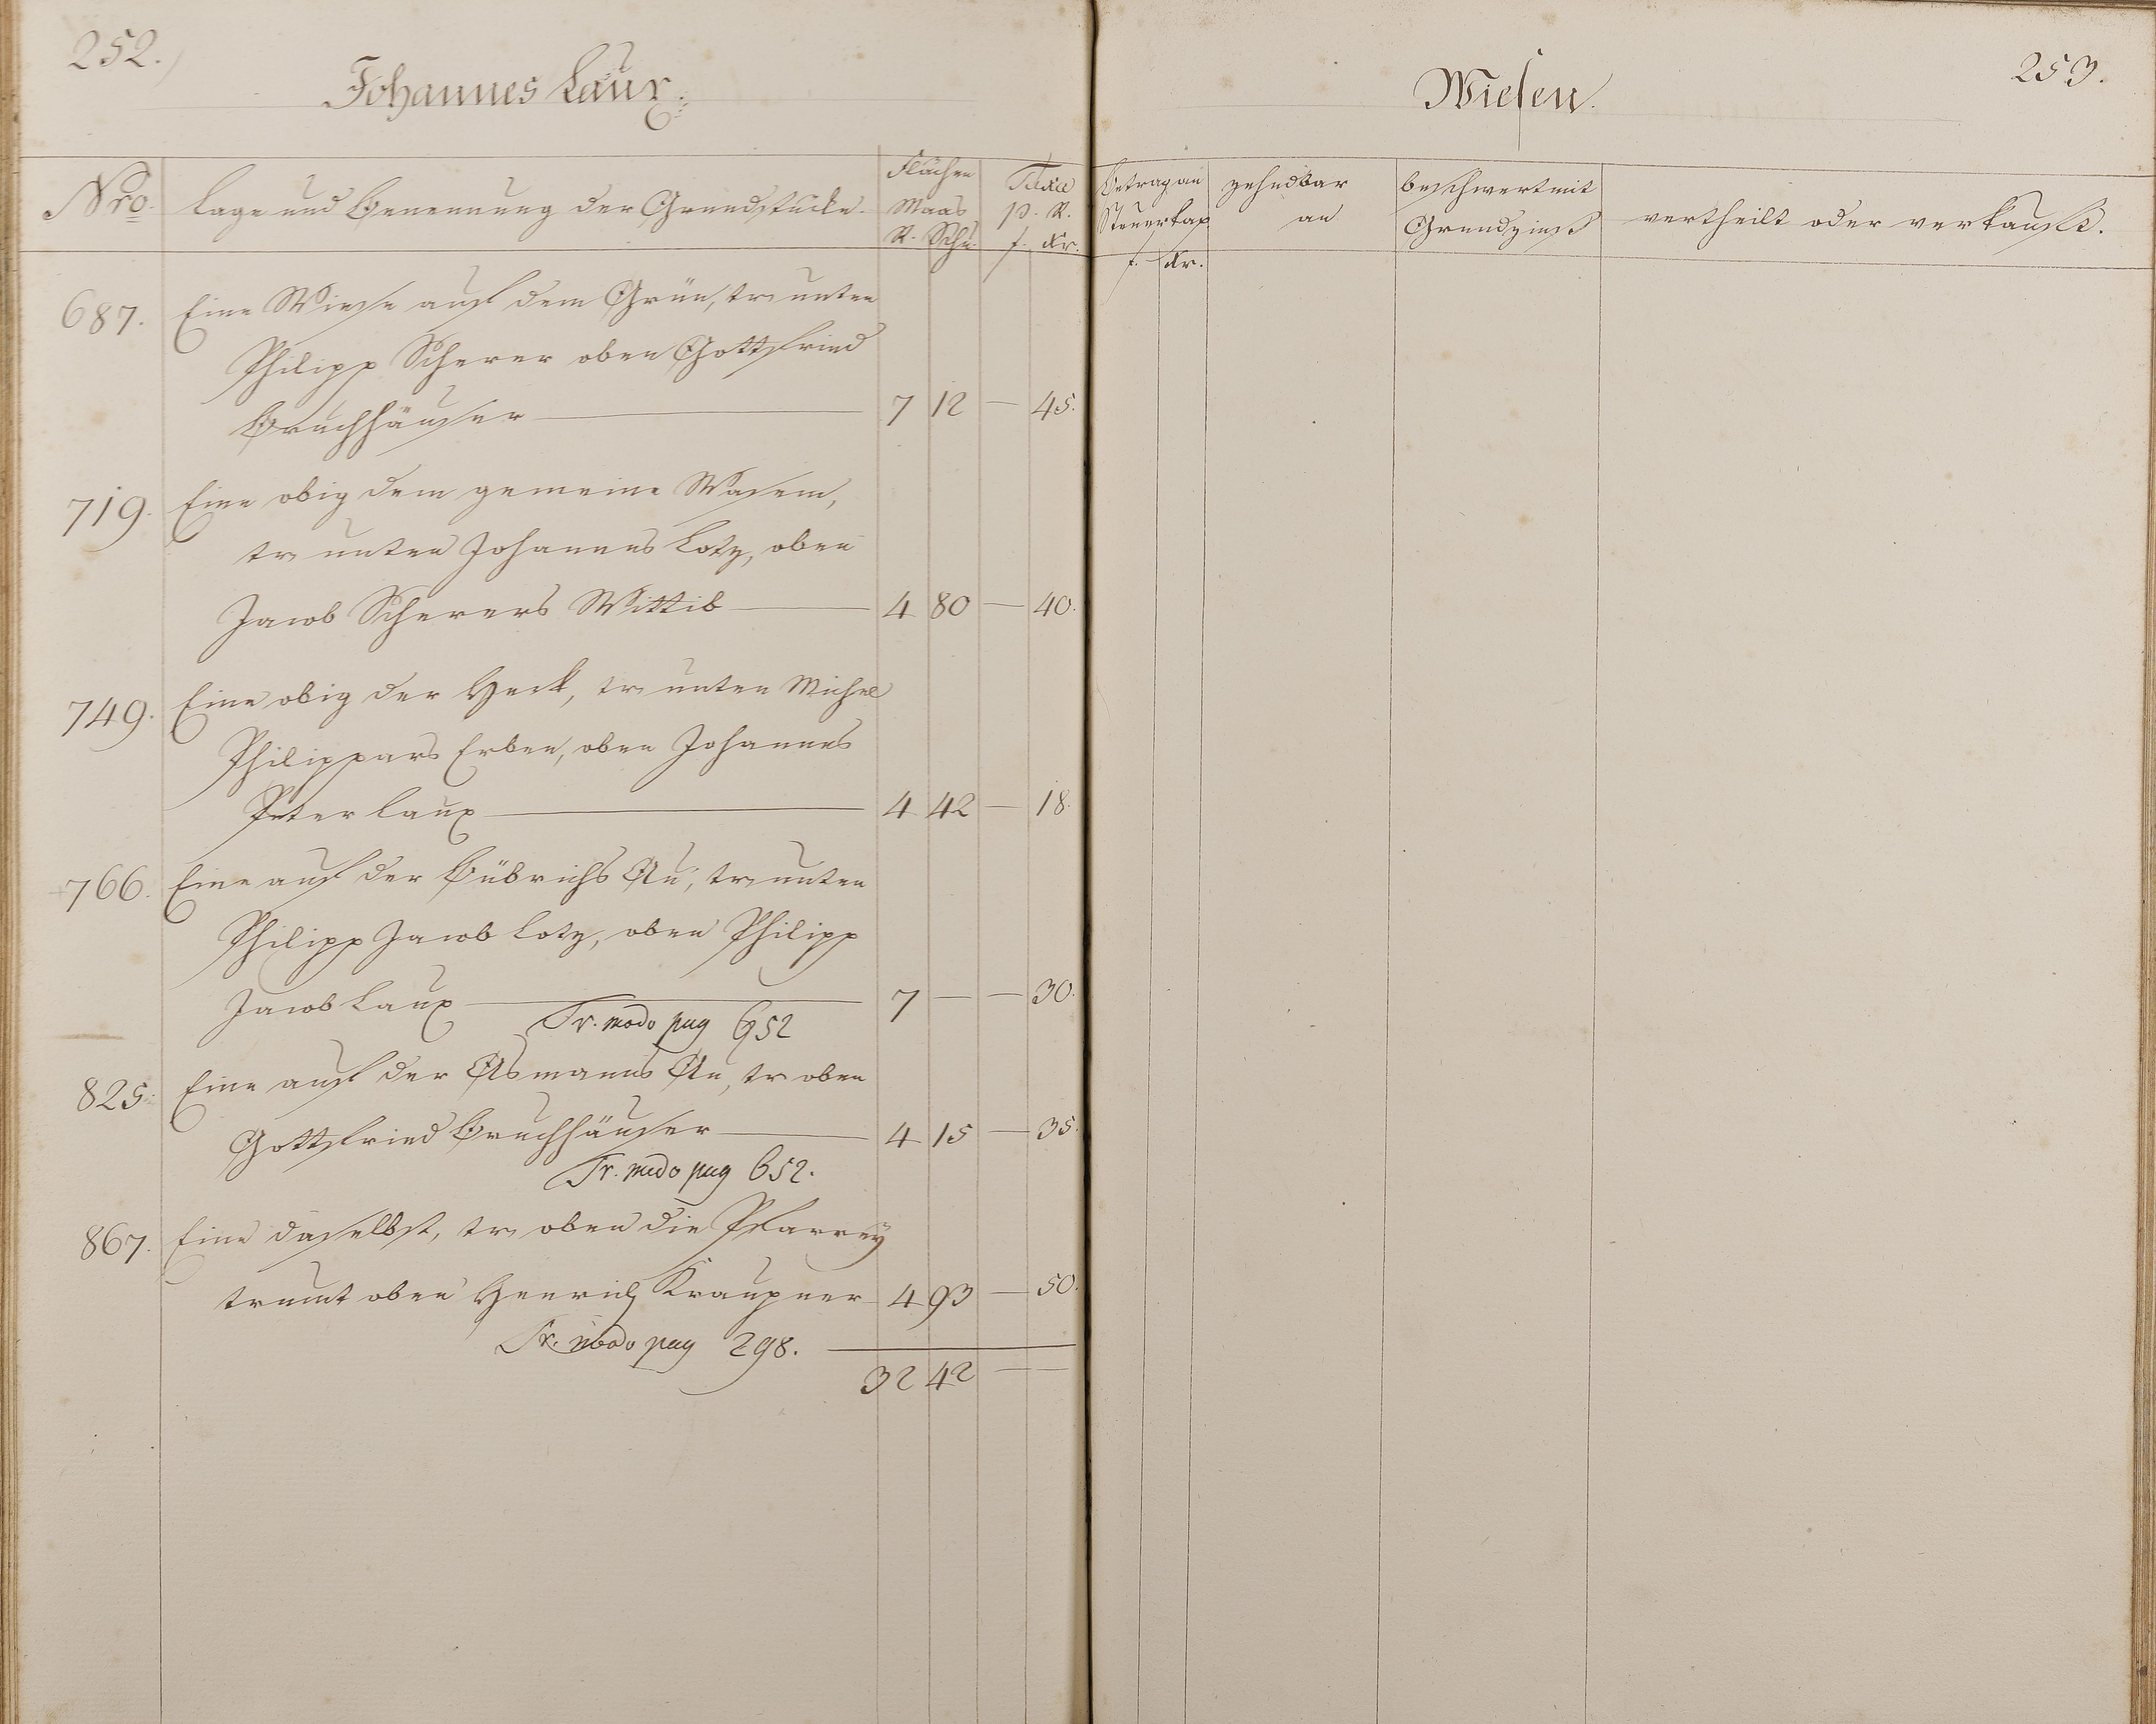 252.
Johannes Laux.
Nro.
Lage und Benennung der Grundstücke.
Flächen
Maas
R. Schu.
Taxa
p. R.
f. Kr.
687. Eine Wiese auf dem Grün, tr unten
Philipp Scherer oben Gottfried
Bruchhäuser 7 12 — 45.
719. Eine obig dem gemeine Wasem,
tr unten Johannes Lotz, oben
Jacob Scherers Wittib 4 80 — 40.
749. Eine obig der Heck, tr unten Michel
Philippars Erben, oben Johannes
Peter Laux 4 42 — 18.
766. Eine auf der Bübrichs Au, tr unten
Philipp Jacob Lotz, oben Philipp
Jacob Laux 7 — — 30.
Tr. modo pag 652
825. Eine auf der Asmanns Au, tr oben
Gottfried Bruchhäuser 4 15 — 35.
Tr. modo pag 652.
867. Eine daselbst, tr oben die Pfarrey
trumt oben Henrich Kraupner 4 93 — 50.
Tr. modo pag 298.
32 42 — —
253.
Wiesen.
Betrag an
Steuerkap
f. Kr.
zehndbar
an
beschwert mit
Grundzinß
vertheilt oder verkauft.